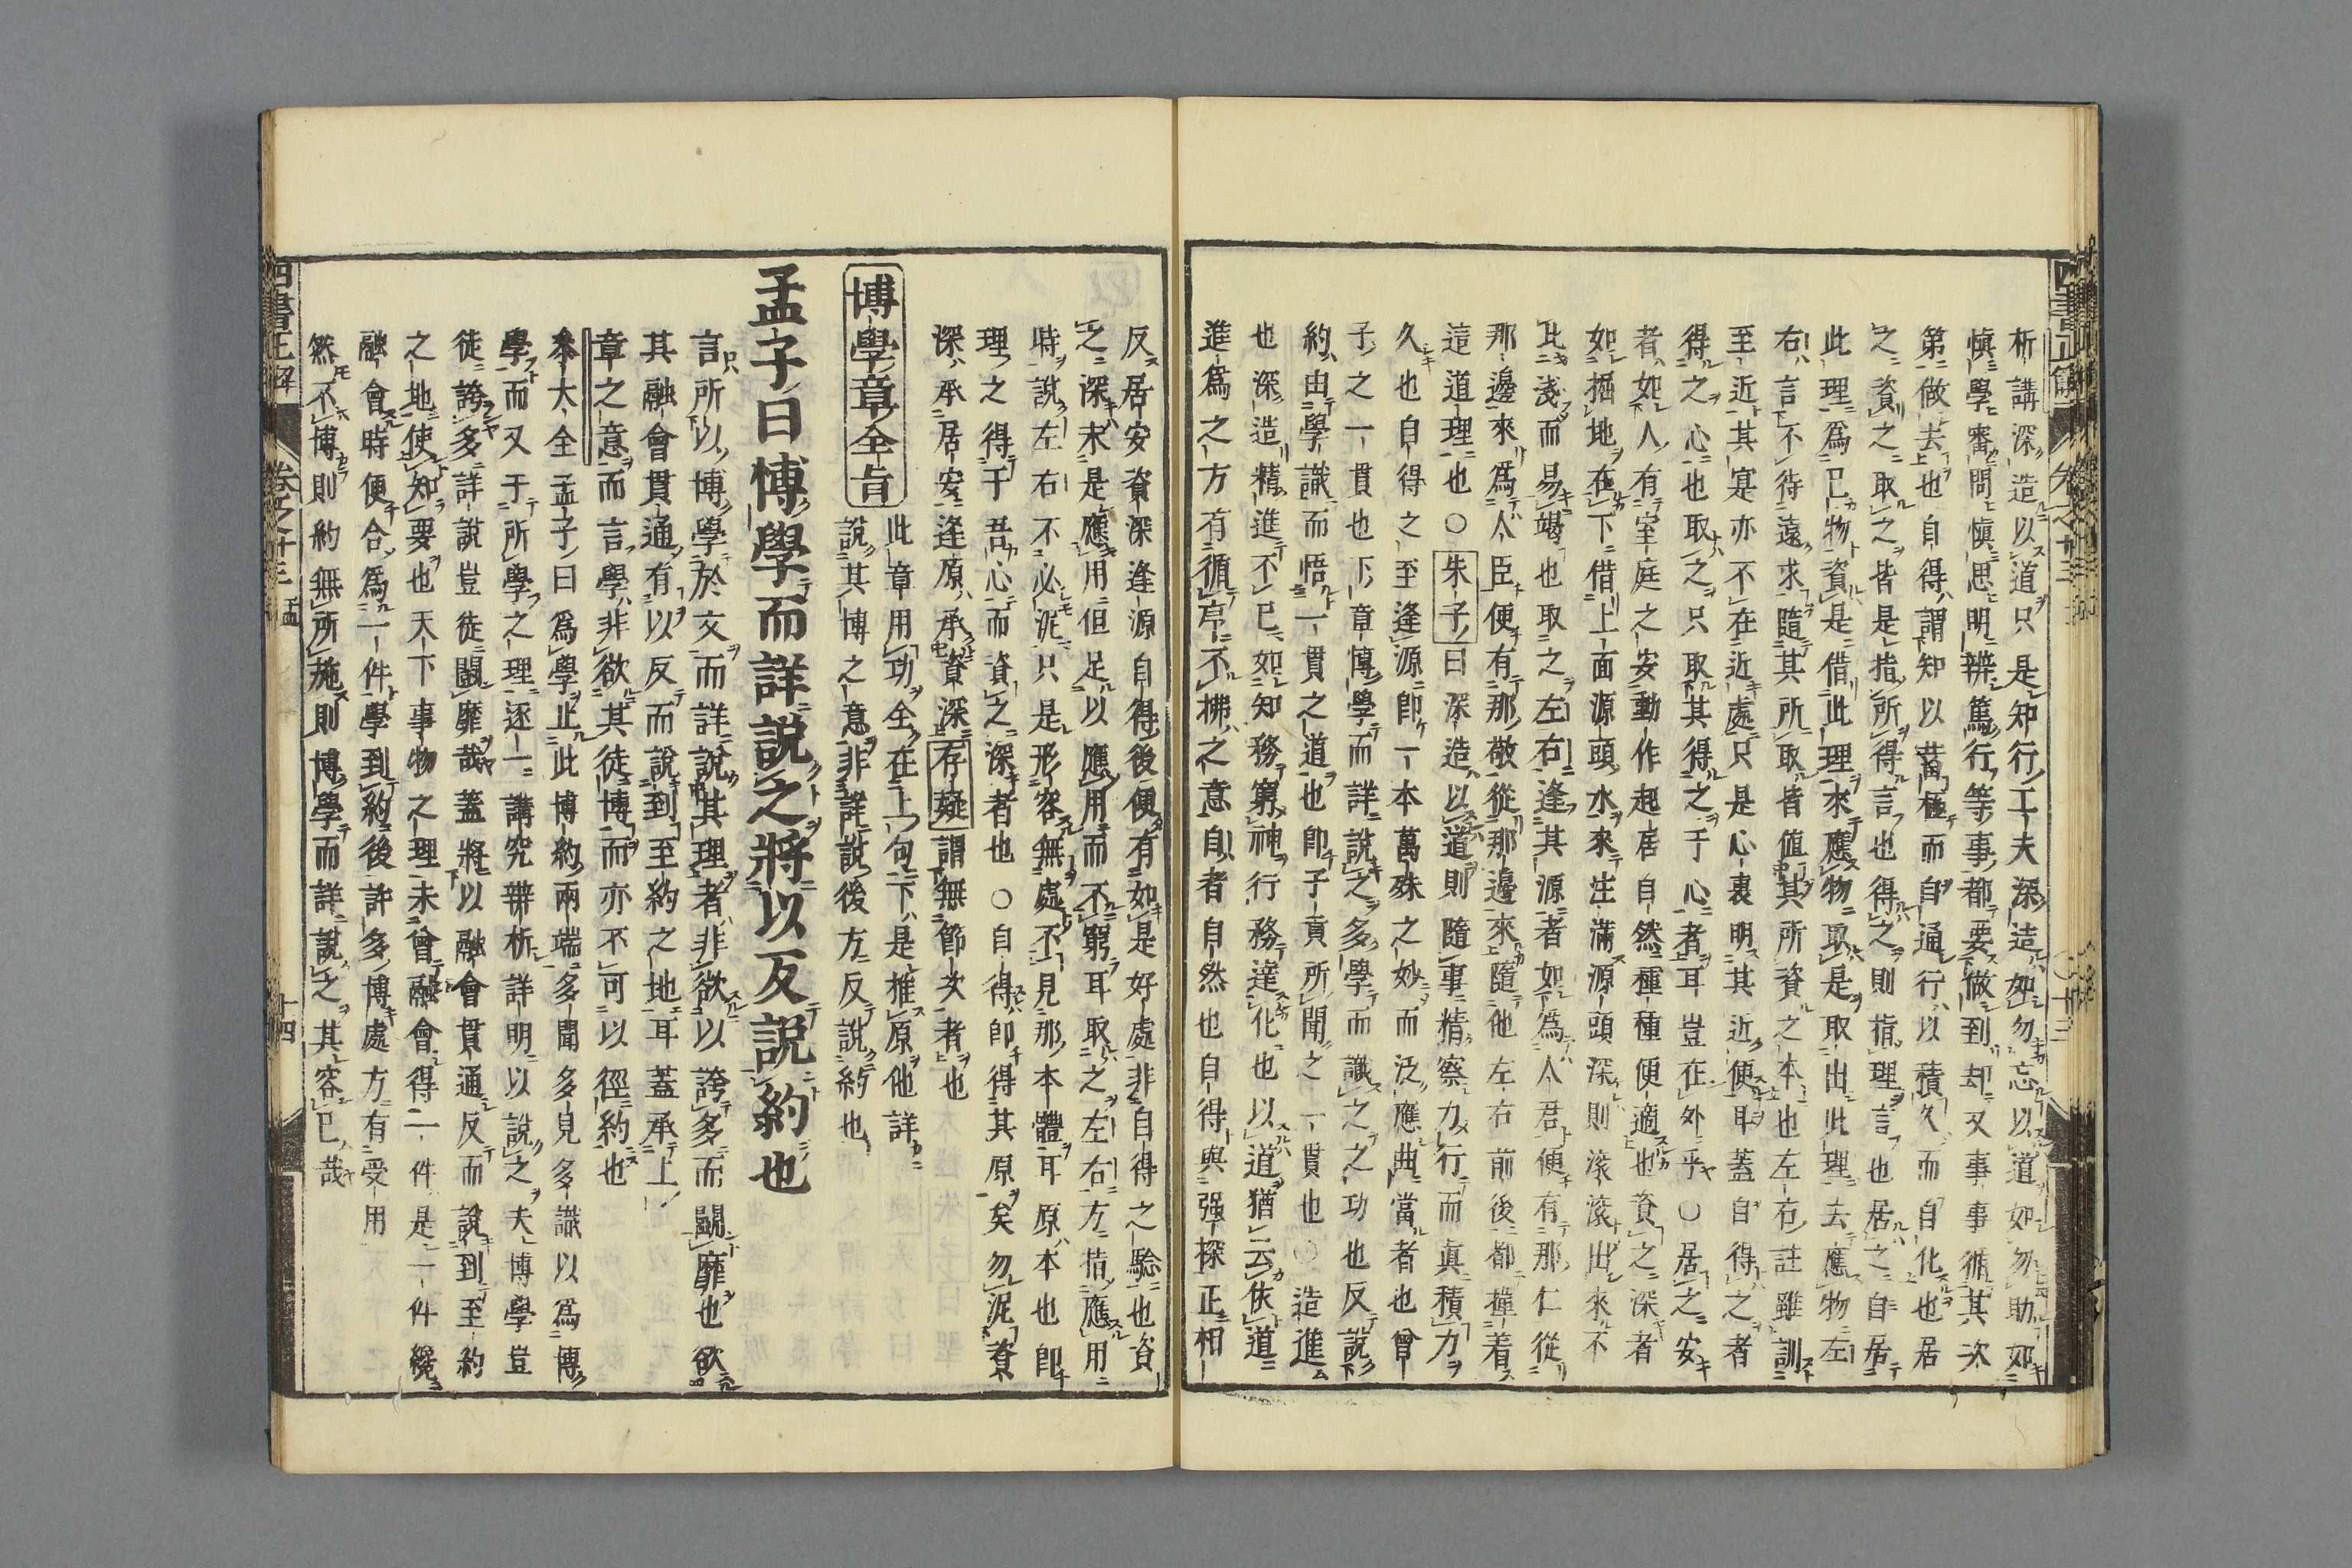 析講深造以道只是知行工夫深造如勿忘以道如勿助如
慎學審問慎思明辨篤行等事都要做到却又事事循其次
第做去也自得謂知以蓄極而自通行以積久而自化也居
之資之取之皆是指所得言也得之則指理言也居之自居
此理為己物資是借此理來應物取是取出此理去應物左
右言不待遠求隨其所取皆值其所資之本也左右註雖訓
至近其寔亦不在近處只是心裏明其近便耳蓋自得之者
得之心也取之只取其得之于心者耳豈在外乎○居之安
者如人有室庭之安動作起居自然種種便適也資之深者
如掘地在下借上面源頭水來注滿源頭深則滾滾出來不
此淺而易竭也取之左右逢其源者如為人君便有那仁從
那邊來為人臣便有那敬從那邊來隨他左右前後都撞着
這道理也○朱子曰深造以道則隨事精察力行而真積力
久也自得之至逢源即一本萬殊之妙而泛應曲當者也曾
子之一貫也下章博學而詳說之多學而識之之功也反說
約由學識而悟一貫之道也即子貢所聞之一貫也○造進
也深造精進不已如知務窮神行務達化也以道猶云依道
進為之方有循序不拂之意自者自然也自得與强探正相
反居安資深逢源自得後便有如是好處非自得之驗也資
之深末是應用但足以應用而不窮耳取之左右方指應用
時說左右不必泥只是形容無處不見那本體耳原本也即
理之得于吾心而資之深者也○自得即得其原矣勿泥資
深承居安逢原承資深存疑謂無節次者也
博學章全旨
此章用功全在上句下是推原他詳
說其博之意非詳說後方反說約也
孟子曰博學而詳說之將以反說約也
言所以博學於文而詳說其理者非欲以誇多而鬬靡也欲
其融會貫通有以反而說到至約之地耳蓋承上
章之意而言學非欲其徒博而亦不可以徑約也
參大全孟子曰為學止此博約兩端多聞多見多識以為博
學而又于所學之理逐一講究辨析詳明以說之夫博學豈
徒誇多詳說豈徒鬬靡哉蓋將以融會貫通反而說到至約
之地使知要也天下事物之理未會融會得二件是一件纔
融會時便合為一件學到約後許多博處方有受用
然不博則約無所施則博學而詳說之其容已哉